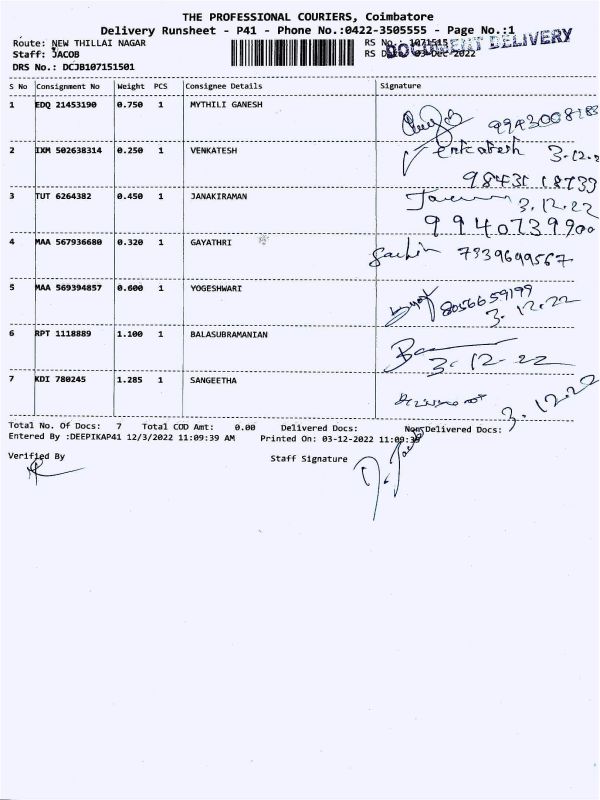 THE PROFESSIONAL COURIERS, Coimbatore
Delivery Runsheet - P41 - Phone No.:0422-3505555 - Page No.:1
Route: NEW THILLAI NAGAR RS No.: 1071515
DOCUMENT DELIVERY
Staff: JACOB RS Date: 03-Dec-2022
DRS No.: DCJB107151501
S No Consignment No Weight PCS Consignee Details Signature
1 EDQ 21453190 0.750 1 MYTHILI GANESH
2 IXM 502638314 0.250 1 VENKATESH
3.12.2
98431 18733
3 TUT 6264382 0.450 1 JANAKIRAMAN
3.12.22
9940739900
4 MAA 567936680 0.320 1 GAYATHRI
7339699567
5 MAA 569394857 0.600 1 YOGESHWARI
8056659199
3.12.22
6 RPT 1118889 1.100 1 BALASUBRAMANIAN
3-12-22
7 KDI 780245 1.285 1 SANGEETHA
3.12.22
Total No. Of Docs: 7 Total COD Amt: 0.00 Delivered Docs: Non Delivered Docs:
Entered By :DEEPIKAP41 12/3/2022 11:09:39 AM Printed On: 03-12-2022 11:09:39
Verified By Staff Signature